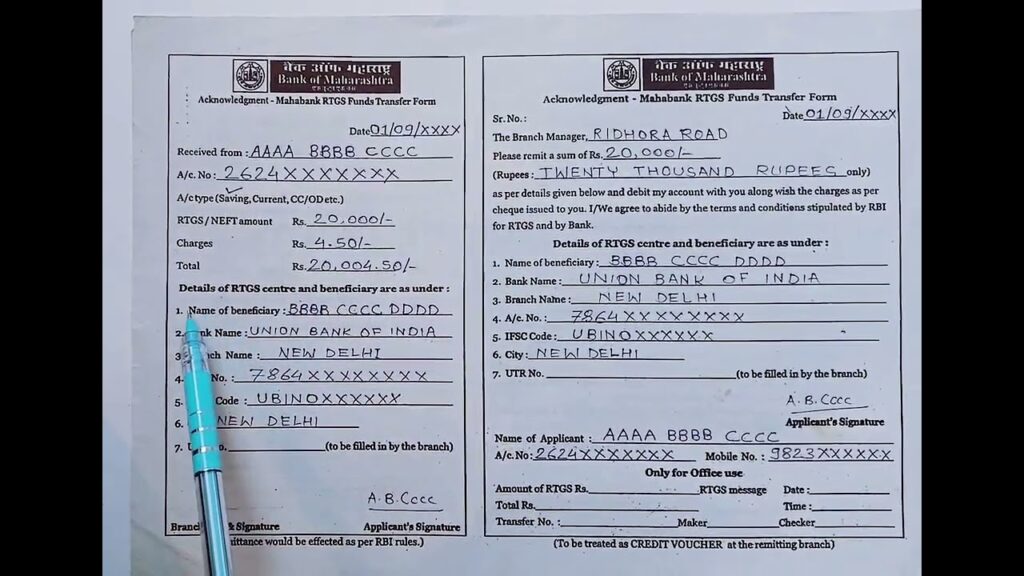 बैंक ऑफ महाराष्ट्र
Bank of Maharashtra
Acknowledgment - Mahabank RTGS Funds Transfer Form
Date 01/09/XXXX
Received from : AAAA BBBB CCCC
A/c. No : 2624XXXXXXX
A/c type (Saving, Current, CC/OD etc.)
RTGS / NEFT amount Rs. 20,000/-
Charges Rs. 4.50/-
Total Rs. 20,004.50/-
Details of RTGS centre and beneficiary are as under :
1. Name of beneficiary : BBBB CCCC DDDD
2. nk Name : UNION BANK OF INDIA
3 ch Name : NEW DELHI
4. No. : 7864XXXXXXXX
5. Code : UBINOXXXXXX
6. NEW DELHI
7. (to be filled in by the branch)
A.B.Cccc
Branc & Signature Applicant's Signature
ittance would be effected as per RBI rules.)
बैंक ऑफ महाराष्ट्र
Bank of Maharashtra
Acknowledgment - Mahabank RTGS Funds Transfer Form
Sr. No. : Date 01/09/XXXX
The Branch Manager, RIDHORA ROAD
Please remit a sum of Rs. 20,000/-
(Rupees : TWENTY THOUSAND RUPEES only)
as per details given below and debit my account with you along wish the charges as per
cheque issued to you. I/We agree to abide by the terms and conditions stipulated by RBI
for RTGS and by Bank.
Details of RTGS centre and beneficiary are as under :
1. Name of beneficiary : BBBB CCCC DDDD
2. Bank Name : UNION BANK OF INDIA
3. Branch Name : NEW DELHI
4. A/c. No. : 7864XXXXXXXX
5. IFSC Code : UBINOXXXXXX
6. City : NEW DELHI
7. UTR No. (to be filled in by the branch)
A.B.Cccc
Applicant's Signature
Name of Applicant : AAAA BBBB CCCC
A/c. No: 2624XXXXXXX Mobile No. : 9823XXXXXX
Only for Office use
Amount of RTGS Rs. RTGS message Date :
Total Rs. Time :
Transfer No. : Maker Checker
(To be treated as CREDIT VOUCHER at the remitting branch)